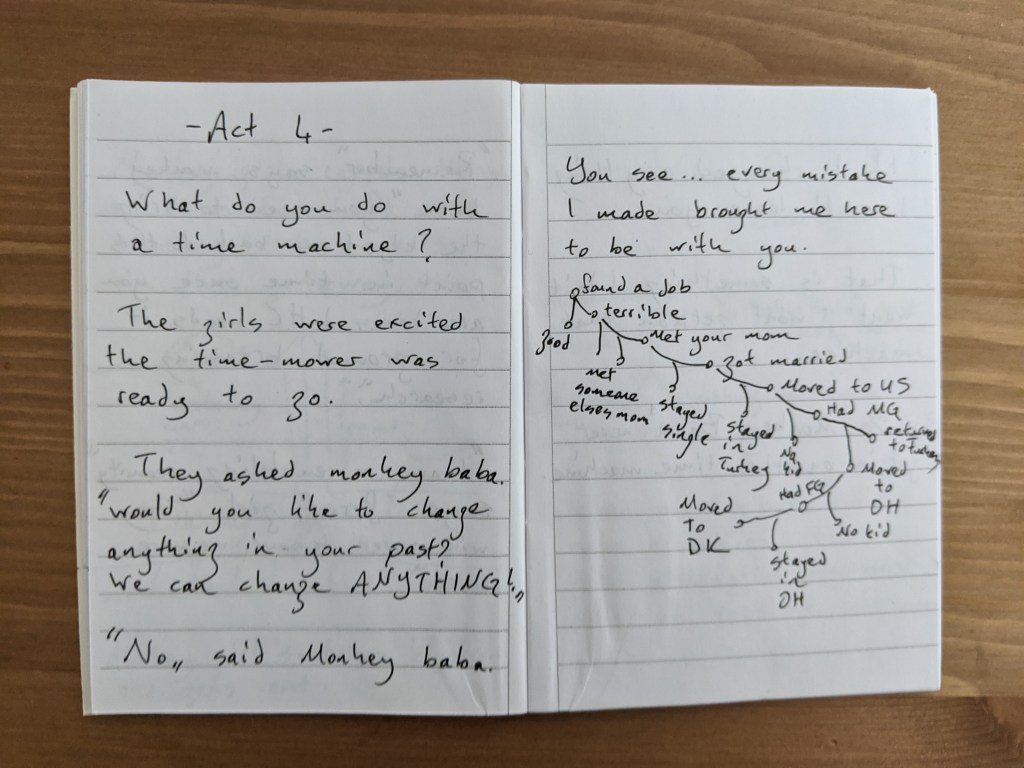 -Act 4-
What do you do with
a time machine?
The girls were excited
the time-mower was
ready to go.
They asked monkey baba.
"would you like to change
anything in your past?
We can change ANYTHING!„
"No„ said Monkey baba.
You see... every mistake
I made brought me here
to be with you.
found a job
terrible
good
Met your mom
met
someone
elses mom
got married
stayed
single
Moved to US
stayed
in
Turkey
Had MG
No
kid
return
to Turkey
Moved
to
OH
Had FG
No kid
Moved
to
DK
stayed
in
OH